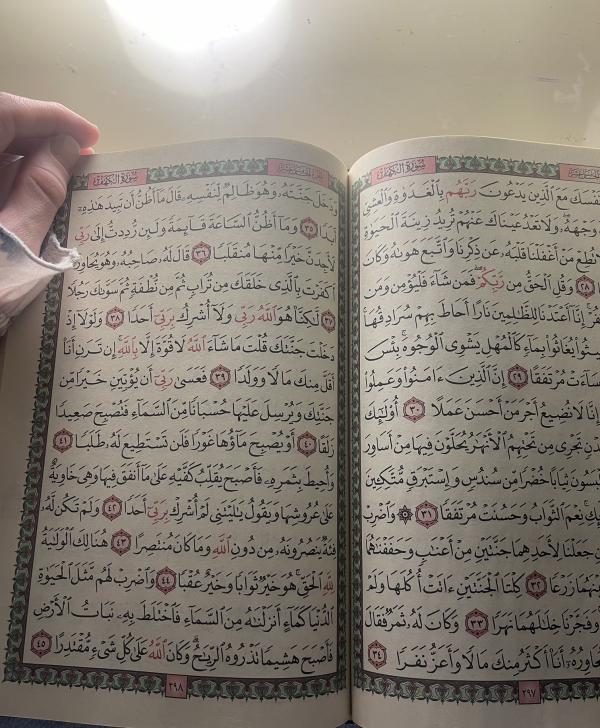 سُورَةُ الكَهْفِ
نَفْسَكَ مَعَ ٱلَّذِينَ يَدْعُونَ رَبَّهُم بِٱلْغَدَوٰةِ وَٱلْعَشِىِّ
وَجْهَهُۥ وَلَا تَعْدُ عَيْنَاكَ عَنْهُمْ تُرِيدُ زِينَةَ ٱلْحَيَوٰةِ
تُطِعْ مَنْ أَغْفَلْنَا قَلْبَهُۥ عَن ذِكْرِنَا وَٱتَّبَعَ هَوَىٰهُ وَكَانَ
٢٨ وَقُلِ ٱلْحَقُّ مِن رَّبِّكُمْ فَمَن شَآءَ فَلْيُؤْمِن وَمَن
إِنَّآ أَعْتَدْنَا لِلظَّٰلِمِينَ نَارًا أَحَاطَ بِهِمْ سُرَادِقُهَا
يُغَاثُوا۟ بِمَآءٍ كَٱلْمُهْلِ يَشْوِى ٱلْوُجُوهَ بِئْسَ
سَآءَتْ مُرْتَفَقًا ٢٩ إِنَّ ٱلَّذِينَ ءَامَنُوا۟ وَعَمِلُوا۟
إِنَّا لَا نُضِيعُ أَجْرَ مَنْ أَحْسَنَ عَمَلًا ٣٠ أُو۟لَٰٓئِكَ
تَجْرِى مِن تَحْتِهِمُ ٱلْأَنْهَٰرُ يُحَلَّوْنَ فِيهَا مِنْ أَسَاوِرَ
ثِيَابًا خُضْرًا مِّن سُندُسٍ وَإِسْتَبْرَقٍ مُّتَّكِـِٔينَ
نِعْمَ ٱلثَّوَابُ وَحَسُنَتْ مُرْتَفَقًا ٣١ ۞ وَٱضْرِبْ
جَعَلْنَا لِأَحَدِهِمَا جَنَّتَيْنِ مِنْ أَعْنَٰبٍ وَحَفَفْنَٰهُمَا
زَرْعًا ٣٢ كِلْتَا ٱلْجَنَّتَيْنِ ءَاتَتْ أُكُلَهَا وَلَمْ
وَفَجَّرْنَا خِلَٰلَهُمَا نَهَرًا ٣٣ وَكَانَ لَهُۥ ثَمَرٌ فَقَالَ
أَنَا۠ أَكْثَرُ مِنكَ مَالًا وَأَعَزُّ نَفَرًا ٣٤
٢٩٧
سُورَةُ الكَهْفِ
وَدَخَلَ جَنَّتَهُۥ وَهُوَ ظَالِمٌ لِّنَفْسِهِۦ قَالَ مَآ أَظُنُّ أَن تَبِيدَ هَٰذِهِۦٓ
أَبَدًا ٣٥ وَمَآ أَظُنُّ ٱلسَّاعَةَ قَآئِمَةً وَلَئِن رُّدِدتُّ إِلَىٰ رَبِّى
لَأَجِدَنَّ خَيْرًا مِّنْهَا مُنقَلَبًا ٣٦ قَالَ لَهُۥ صَاحِبُهُۥ وَهُوَ يُحَاوِرُهُۥٓ
أَكَفَرْتَ بِٱلَّذِى خَلَقَكَ مِن تُرَابٍ ثُمَّ مِن نُّطْفَةٍ ثُمَّ سَوَّىٰكَ رَجُلًا
٣٧ لَّٰكِنَّا۠ هُوَ ٱللَّهُ رَبِّى وَلَآ أُشْرِكُ بِرَبِّىٓ أَحَدًا ٣٨ وَلَوْلَآ إِذْ
دَخَلْتَ جَنَّتَكَ قُلْتَ مَا شَآءَ ٱللَّهُ لَا قُوَّةَ إِلَّا بِٱللَّهِ إِن تَرَنِ أَنَا۠
أَقَلَّ مِنكَ مَالًا وَوَلَدًا ٣٩ فَعَسَىٰ رَبِّىٓ أَن يُؤْتِيَنِ خَيْرًا مِّن
جَنَّتِكَ وَيُرْسِلَ عَلَيْهَا حُسْبَانًا مِّنَ ٱلسَّمَآءِ فَتُصْبِحَ صَعِيدًا
زَلَقًا ٤٠ أَوْ يُصْبِحَ مَآؤُهَا غَوْرًا فَلَن تَسْتَطِيعَ لَهُۥ طَلَبًا ٤١
وَأُحِيطَ بِثَمَرِهِۦ فَأَصْبَحَ يُقَلِّبُ كَفَّيْهِ عَلَىٰ مَآ أَنفَقَ فِيهَا وَهِىَ خَاوِيَةٌ
عَلَىٰ عُرُوشِهَا وَيَقُولُ يَٰلَيْتَنِى لَمْ أُشْرِكْ بِرَبِّىٓ أَحَدًا ٤٢ وَلَمْ تَكُن لَّهُۥ
فِئَةٌ يَنصُرُونَهُۥ مِن دُونِ ٱللَّهِ وَمَا كَانَ مُنتَصِرًا ٤٣ هُنَالِكَ ٱلْوَلَٰيَةُ
لِلَّهِ ٱلْحَقِّ هُوَ خَيْرٌ ثَوَابًا وَخَيْرٌ عُقْبًا ٤٤ وَٱضْرِبْ لَهُم مَّثَلَ ٱلْحَيَوٰةِ
ٱلدُّنْيَا كَمَآءٍ أَنزَلْنَٰهُ مِنَ ٱلسَّمَآءِ فَٱخْتَلَطَ بِهِۦ نَبَاتُ ٱلْأَرْضِ
فَأَصْبَحَ هَشِيمًا تَذْرُوهُ ٱلرِّيَٰحُ وَكَانَ ٱللَّهُ عَلَىٰ كُلِّ شَىْءٍ مُّقْتَدِرًا ٤٥
٢٩٨